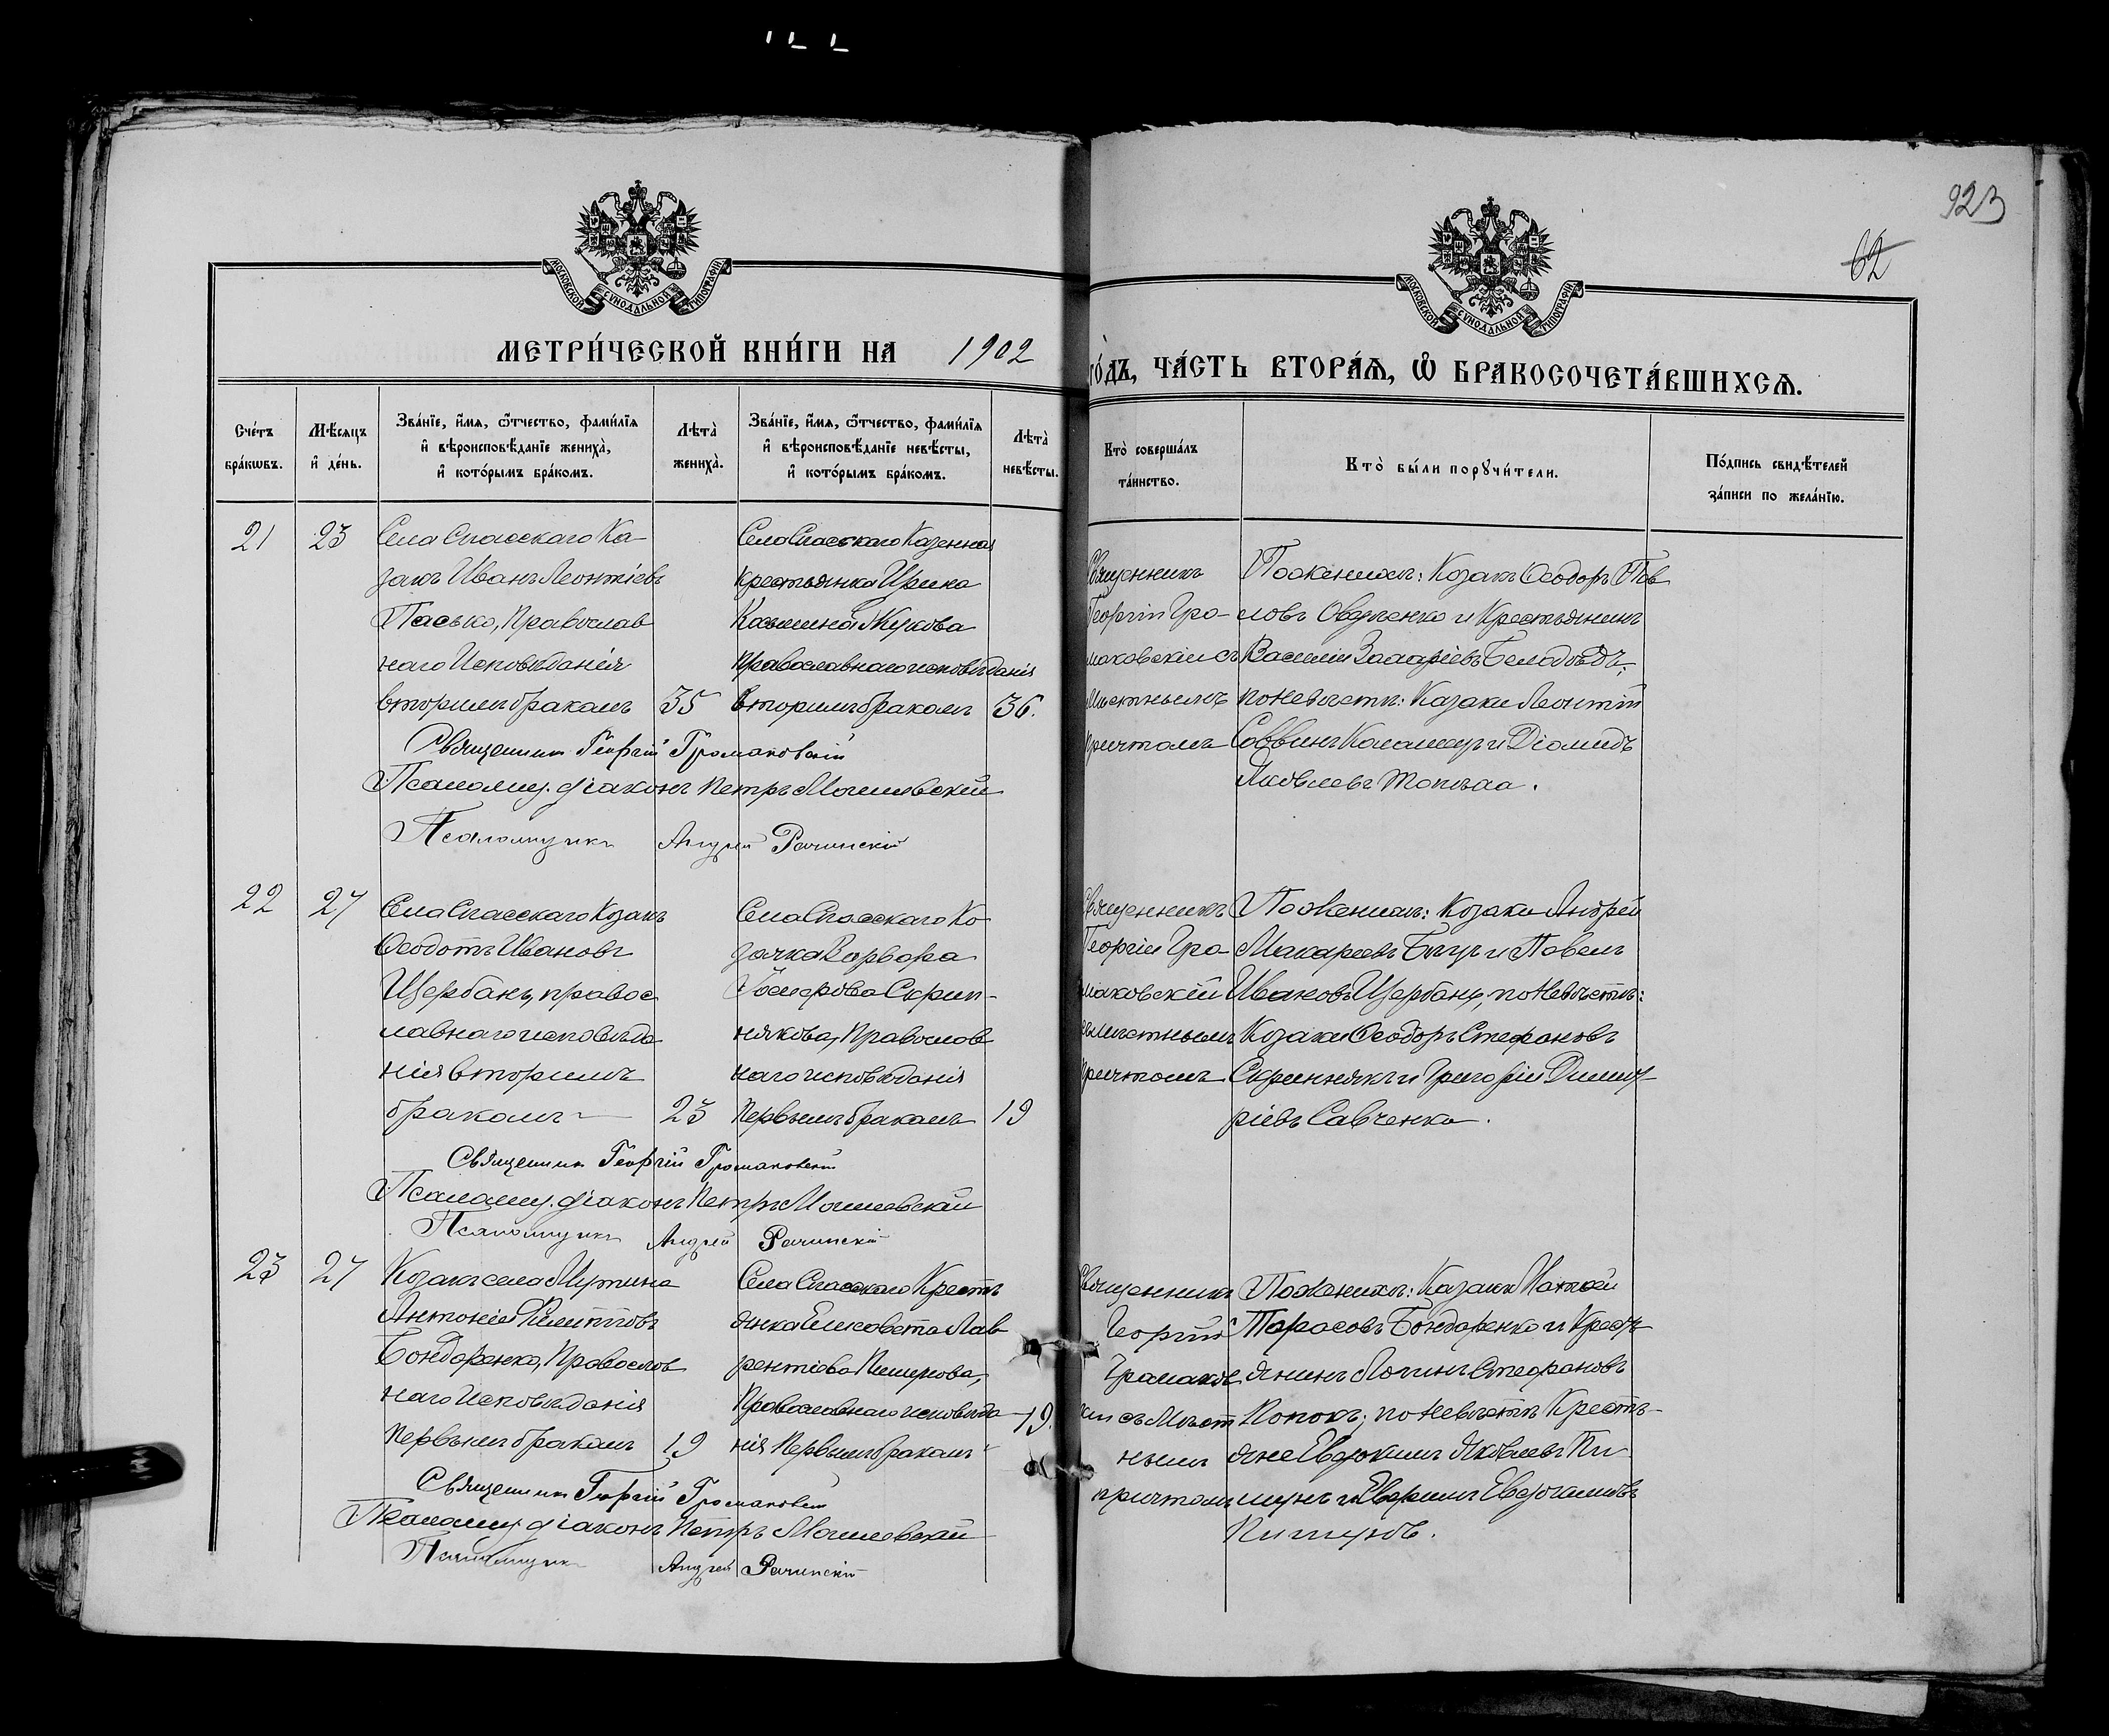 923
62
МОСКОВСКОЙ СѴНОДАЛЬНОЙ ТИПОГРАФІИ
МОСКОВСКОЙ СѴНОДАЛЬНОЙ ТИПОГРАФІИ
МЕТРИ́ЧЕСКОЙ КНИ́ГИ НА 1902
ГО́ДЪ, ЧА́СТЬ ВТОРА́Ѧ, Ѡ БРАКОСОЧЕТА́ВШИХСѦ.
Сче́тъ бра́кѡвъ.
Мѣ́сяцъ и де́нь.
Зва́нїе, и҆́мѧ, ѻ҆́тчество, фами́лїѧ и҆ вѣроисповѣ́данїе жениха̀, и҆ кото́рымъ бра́комъ.
Лѣта̀ жениха̀.
Зва́нїе, и҆́мѧ, ѻ҆́тчество, фами́лїѧ и҆ вѣроисповѣ́данїе невѣ́сты, и҆ кото́рымъ бра́комъ.
Лѣта̀ невѣ́сты.
Кто̀ соверша́лъ та́инство.
Кто̀ бы́ли порꙋчи́тели.
По́дпись свидѣ́телей за́писи по жела́нїю.
21
23
Села Спасскаго Ка-
закъ Иванъ Леонтіевъ
Пасько, Православ
наго Исповѣданія
вторымъ бракомъ
35
Села Спасскаго Казенная
крестьянка Ирина
Козьмина Жукова
православнаго исповѣданія
вторымъ бракомъ
36.
Священникъ
Георгій Гро-
маковскій съ
Мѣстнымъ
причтомъ
По женихѣ: Козакъ Ѳеодоръ Пав
ловъ Овдіенко и Крестьянинъ
Василій Захаріевъ Беладѣдъ;
по невѣстѣ: Казаки Леонтій
Саввинъ и Діомидъ
Яковлевъ
Священникъ Георгій Громаковскій
Псаломщ. діаконъ Петръ Могилевскій
Псаломщикъ Андрей Рачинскій
22
27
Села Спасскаго Козакъ
Ѳеодотъ Ивановъ
Щербакъ, правос
лавнаго исповѣда
нія вторымъ
бракомъ
23
Села Спасскаго Ко
зачка Варвара
Скрип-
някова, Православ
наго исповѣданія
первымъ бракомъ
19
Священникъ
Георгій Гро-
маковскій
съ мѣстнымъ
причтомъ
По женихѣ: Козаки Андрей
Макаріевъ и Павелъ
Ивановъ Щербакъ, по невѣстѣ:
Козаки Ѳеодоръ Стефановъ
Скрипнякъ и Григорій Димит-
ріевъ Савченко.
Священникъ Георгій Громаковскій
Псаломщ. діаконъ Петръ Могилевскій
Псаломщикъ Андрей Рачинскій
23
27
Козакъ села Мутина
Антоній Филипповъ
Бондаренко, Православ
наго Исповѣданія
первымъ бракомъ
19
Села Спасскаго Кресть
янка Елисавета Лав
рентіева
Православнаго исповѣда
нія первымъ бракомъ
19.
Священникъ
Георгій
Громаков
скій съ Мѣст
нымъ
причтомъ
По женихѣ: Казакъ
Тарасовъ Бондаренко и Кресть
янинъ Логинъ Стефановъ
по невѣстѣ Кресть-
яне Евдокимъ Яковлевъ Пи
шунъ и
Пишунъ.
Священникъ Георгій Громаковскій
Псаломщ. діаконъ Петръ Могилевскій
Псаломщикъ Андрей Рачинскій